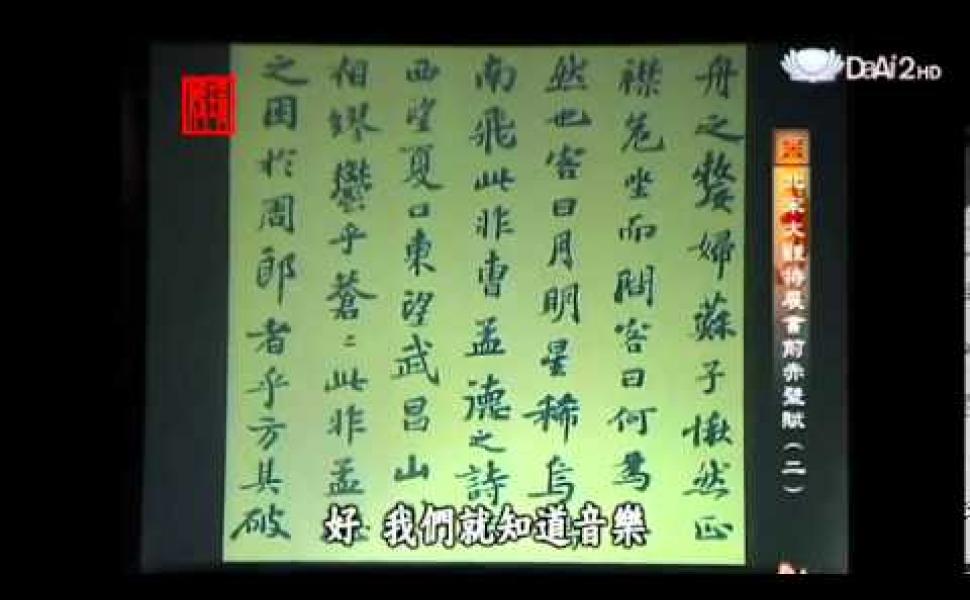 DaAi2 HD
北宋大觀特展書前赤壁賦(二)
舟之嫠婦蘇子愀然正
襟危坐而問客曰何為
然也客曰月明星稀烏
南飛此非曹孟德之詩
西望夏口東望武昌山
相繆鬱乎蒼〻此非孟
之困於周郎者乎方其破
好 我們就知道音樂